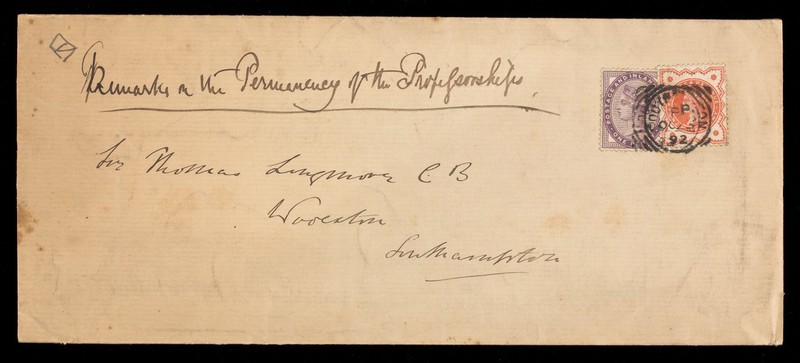 Remarks on the Permanency of the Professorships.
POSTAGE AND INLAN
B
OC
92
Sir Thomas Longmore C B
Woolston
Southampton